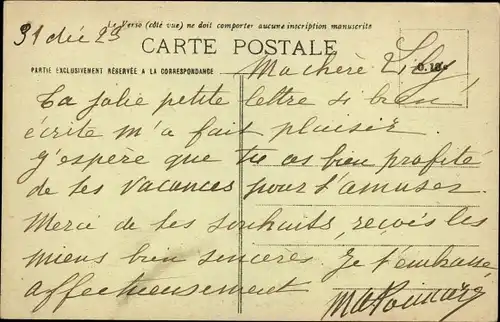 Le Verso (côté vue) ne doit comporter aucune inscription manuscrite
31 déc 23
CARTE POSTALE
PARTIE EXCLUSIVEMENT RÉSERVÉE A LA CORRESPONDANCE
Ma chère Lily
Ta jolie petite lettre si bien
écrite m'a fait plaisir.
J'espère que tu as bien profité
de tes vacances pour t'amuser.
Merci de tes souhaits, reçois les
miens bien sincères. Je t'embrasse
affectueusement